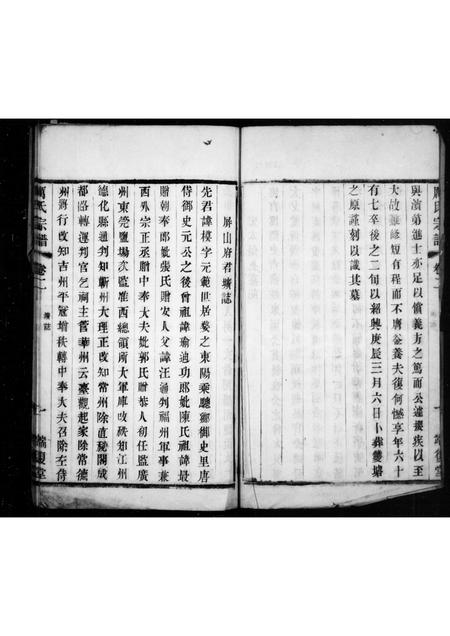 與濱弟進士亦足以償義方之篤而公遽嬰疾以至
大故雖修短有程而不膺釜養夫復何憾享年六十
有七卒後之二旬以紹興庚辰三月六日卜葬雙塘
之原謹刻以識其墓
屏山府君壙誌
先君諱模字元範世居婺之東陽乘驄鄉御史里唐
侍御史元公之後曾祖諱瑜迪功郎妣陳氏祖諱最
贈朝奉郎妣張氏贈安人父諱汪通判福州軍事兼
西外宗正丞贈中奉大夫妣郭氏贈恭人初任監廣
州東莞鹽場次監淮西總領所大軍庫改秩知江州
德化縣通判知蘄州大理正改知常州除直秘閣成
都路轉運判官乞祠主管華州云臺觀起家除常德
州將行改知吉州平冠增秩轉中奉大夫召除左侍
宗譜
卷二
壙誌
氏宗譜
卷二